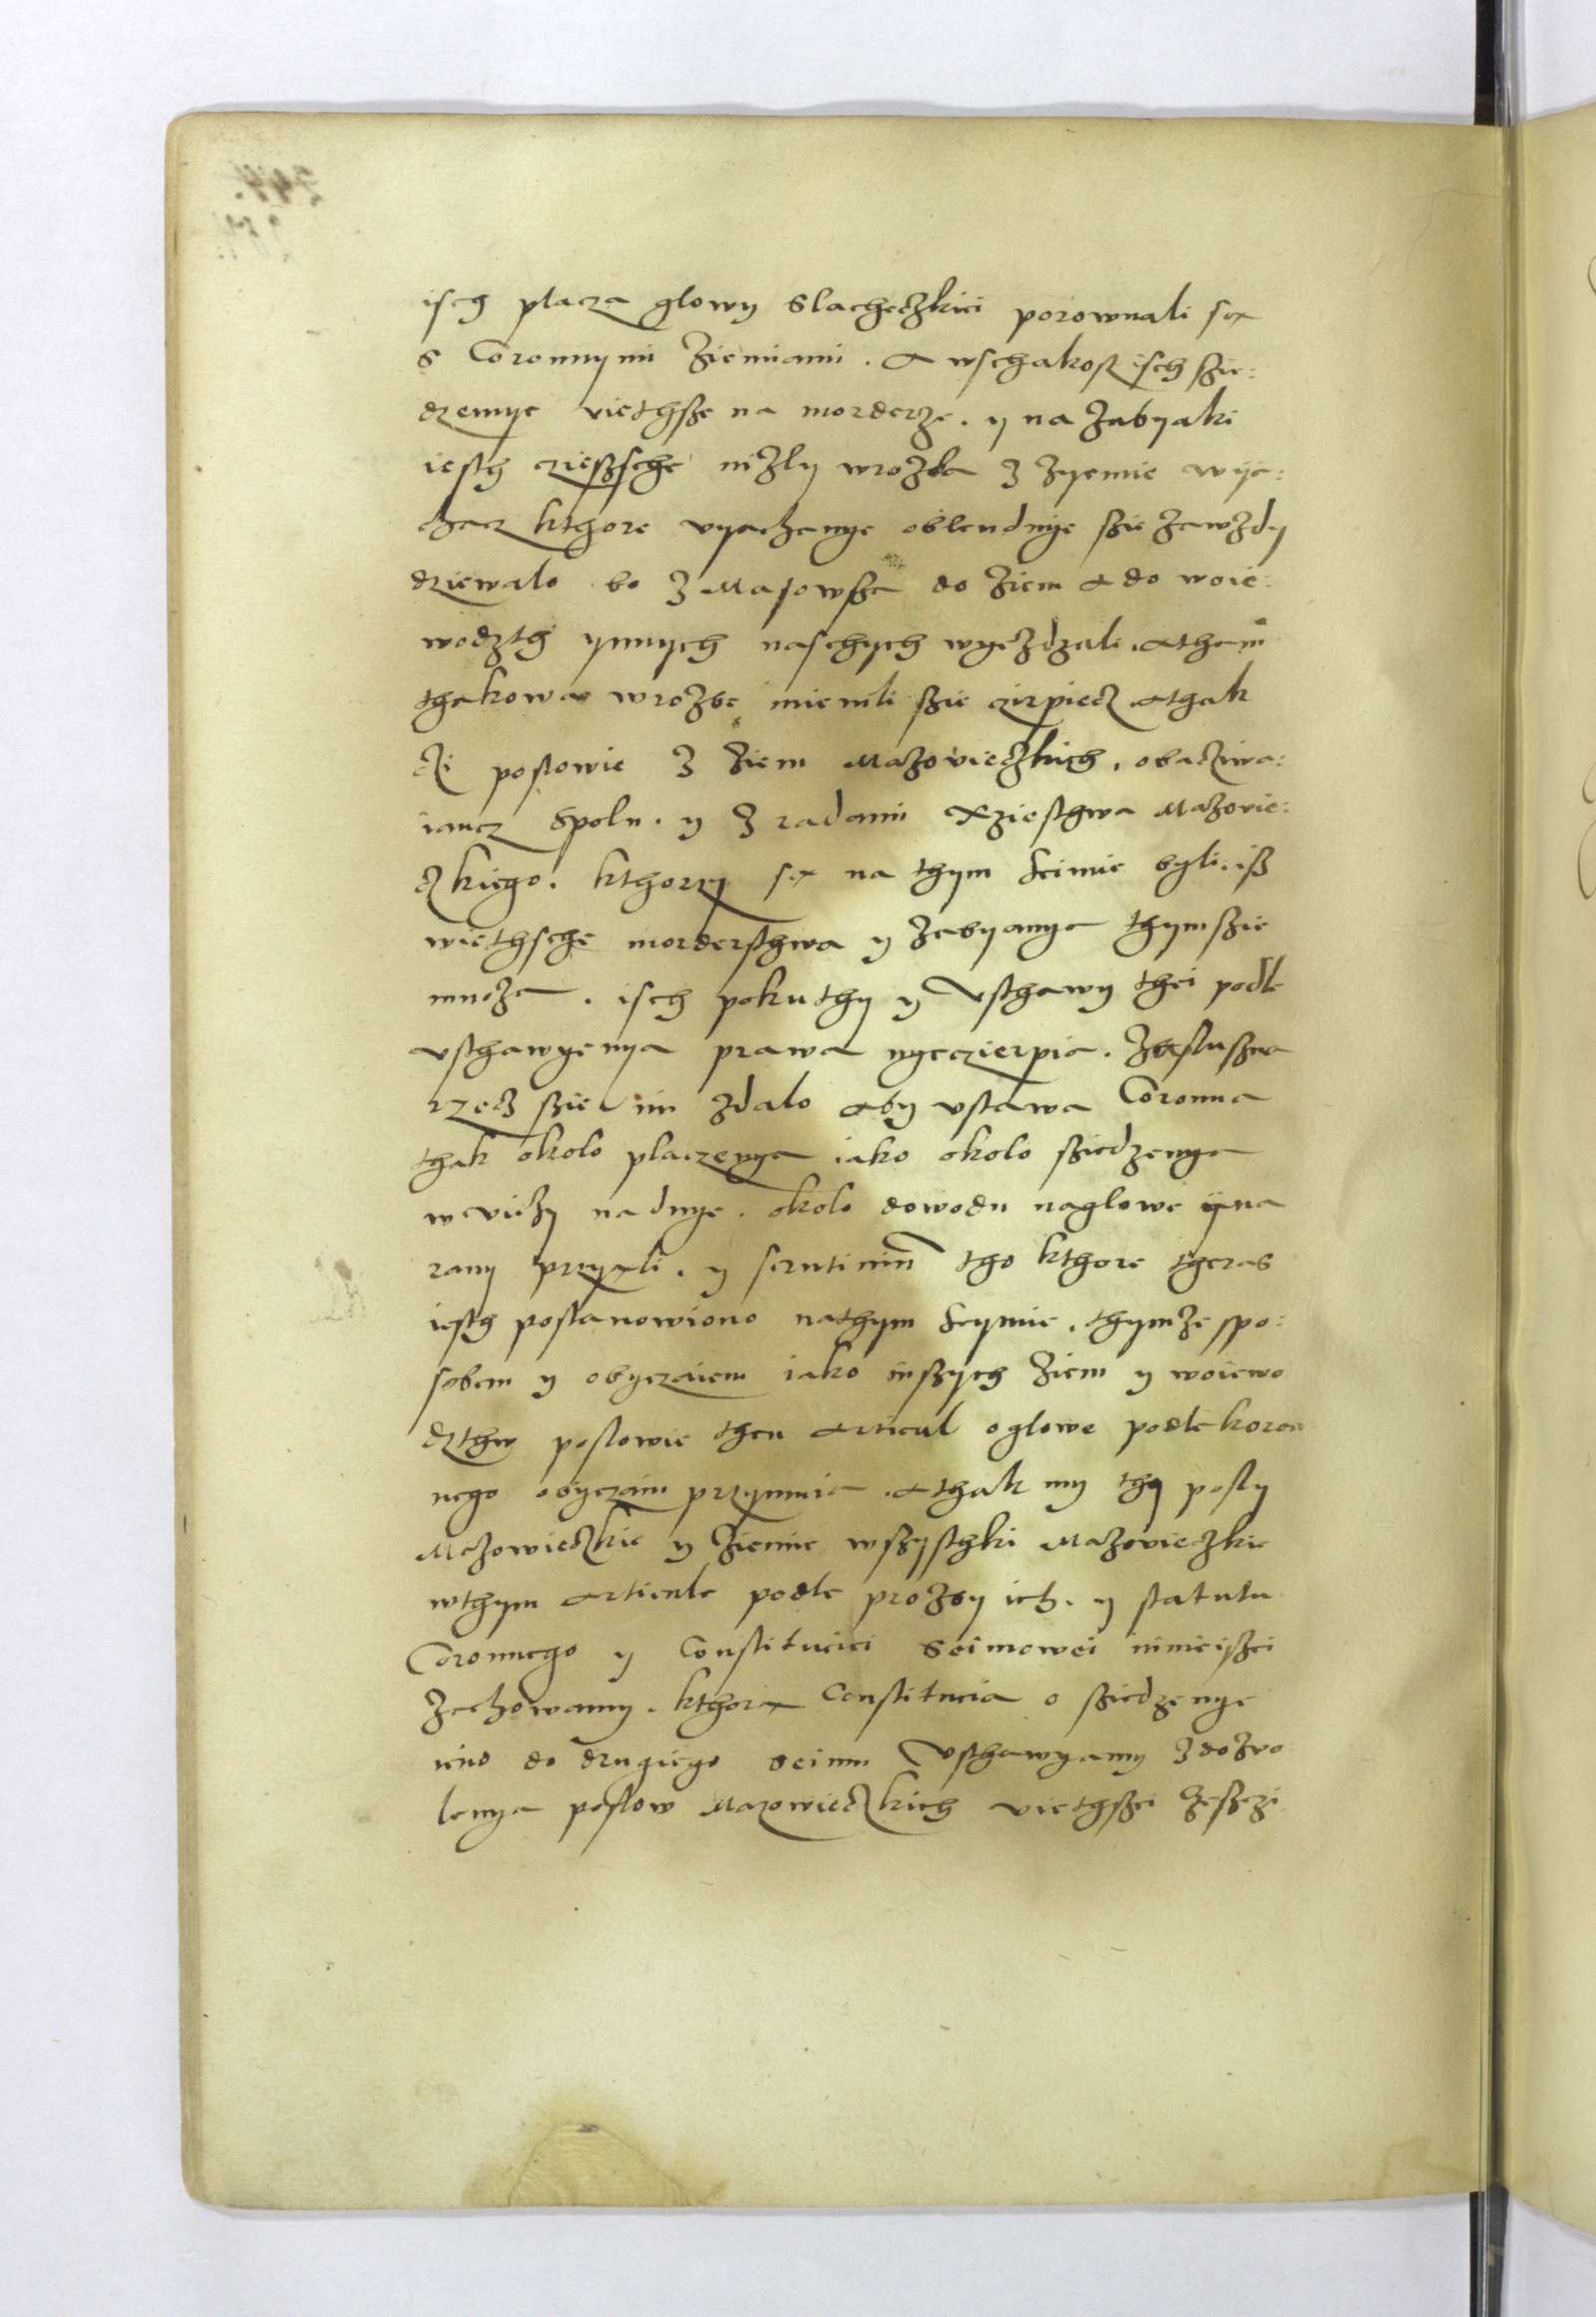 isch placza glowy Slacheczkiei porownali sα
s Coronnymi Ziemiami. A wschakosz isch szie:
dzenye viethsze na morderze. y na zabyaki
iesth cziezsche nizly wrozba z zyemie wye:
chacz kthore vyachanye oblendnye szie zawzdy
dziewalo bo z Masowsza do Ziem a do woie:
wodzth ynnych naschych wyezdzali. a tham
thakowa wrozbe mienili szie czirpiecz a thak
czi poslowie z Ziem Mazovieczkich. obacziwa:
iancz spolu. y z radami Xziesthwa Mazovie:
czkiego. kthorzy sα na thym seimie byli. isz
wiethsche mordersthwa y zabyanya thym szie
mnoza. isch pokuthy y Vsthawy thei podle
vsthawyenya prawa nyeczierpia. Zasluszna
rzecz szie im zdalo aby vstawa Coronna
thak okolo placzenya iako okolo sziedzenya
w viezy na dnye. okolo dowodu naglowe y na
rany przyαli. y scrutinium tho kthore theras
iesth postanowiono nathym seymie. thymze spo:
sobem y obyczaiem iako inszych Ziem y woiewo
dzthw poslowie then Articul oglowe podle koron
nego obyczaiu przymuia. A thak my thy posly
Mazowieczkie y Ziemie wszysthki Mazovieczkie
wthym Articule podle prozby ich. y statutu
Coronnego y Constituciei Seimowei ninieiszei
zachowamy. kthora Constitucia o sziedzenye
ieno do drugiego seimu Vsthawyamy z dozvo
lenya poslow Mazowieczkich viethszei